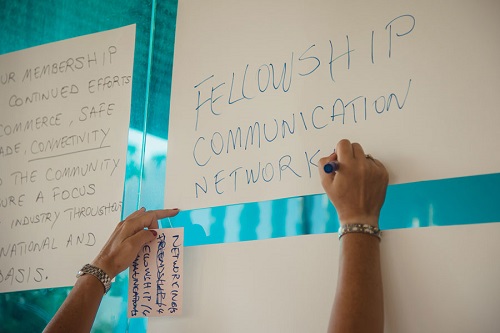 UR MEMBERSHIP
CONTINUED EFFORTS
COMMERCE, SAFE
ADE, CONNECTIVITY
THE COMMUNITY
URE A FOCUS
INDUSTRY THROUGHOUT
NATIONAL AND
BASIS.
FELLOWSHIP
COMMUNICATION
NETWORK
NETWORKING
FELLOWSHIP/4